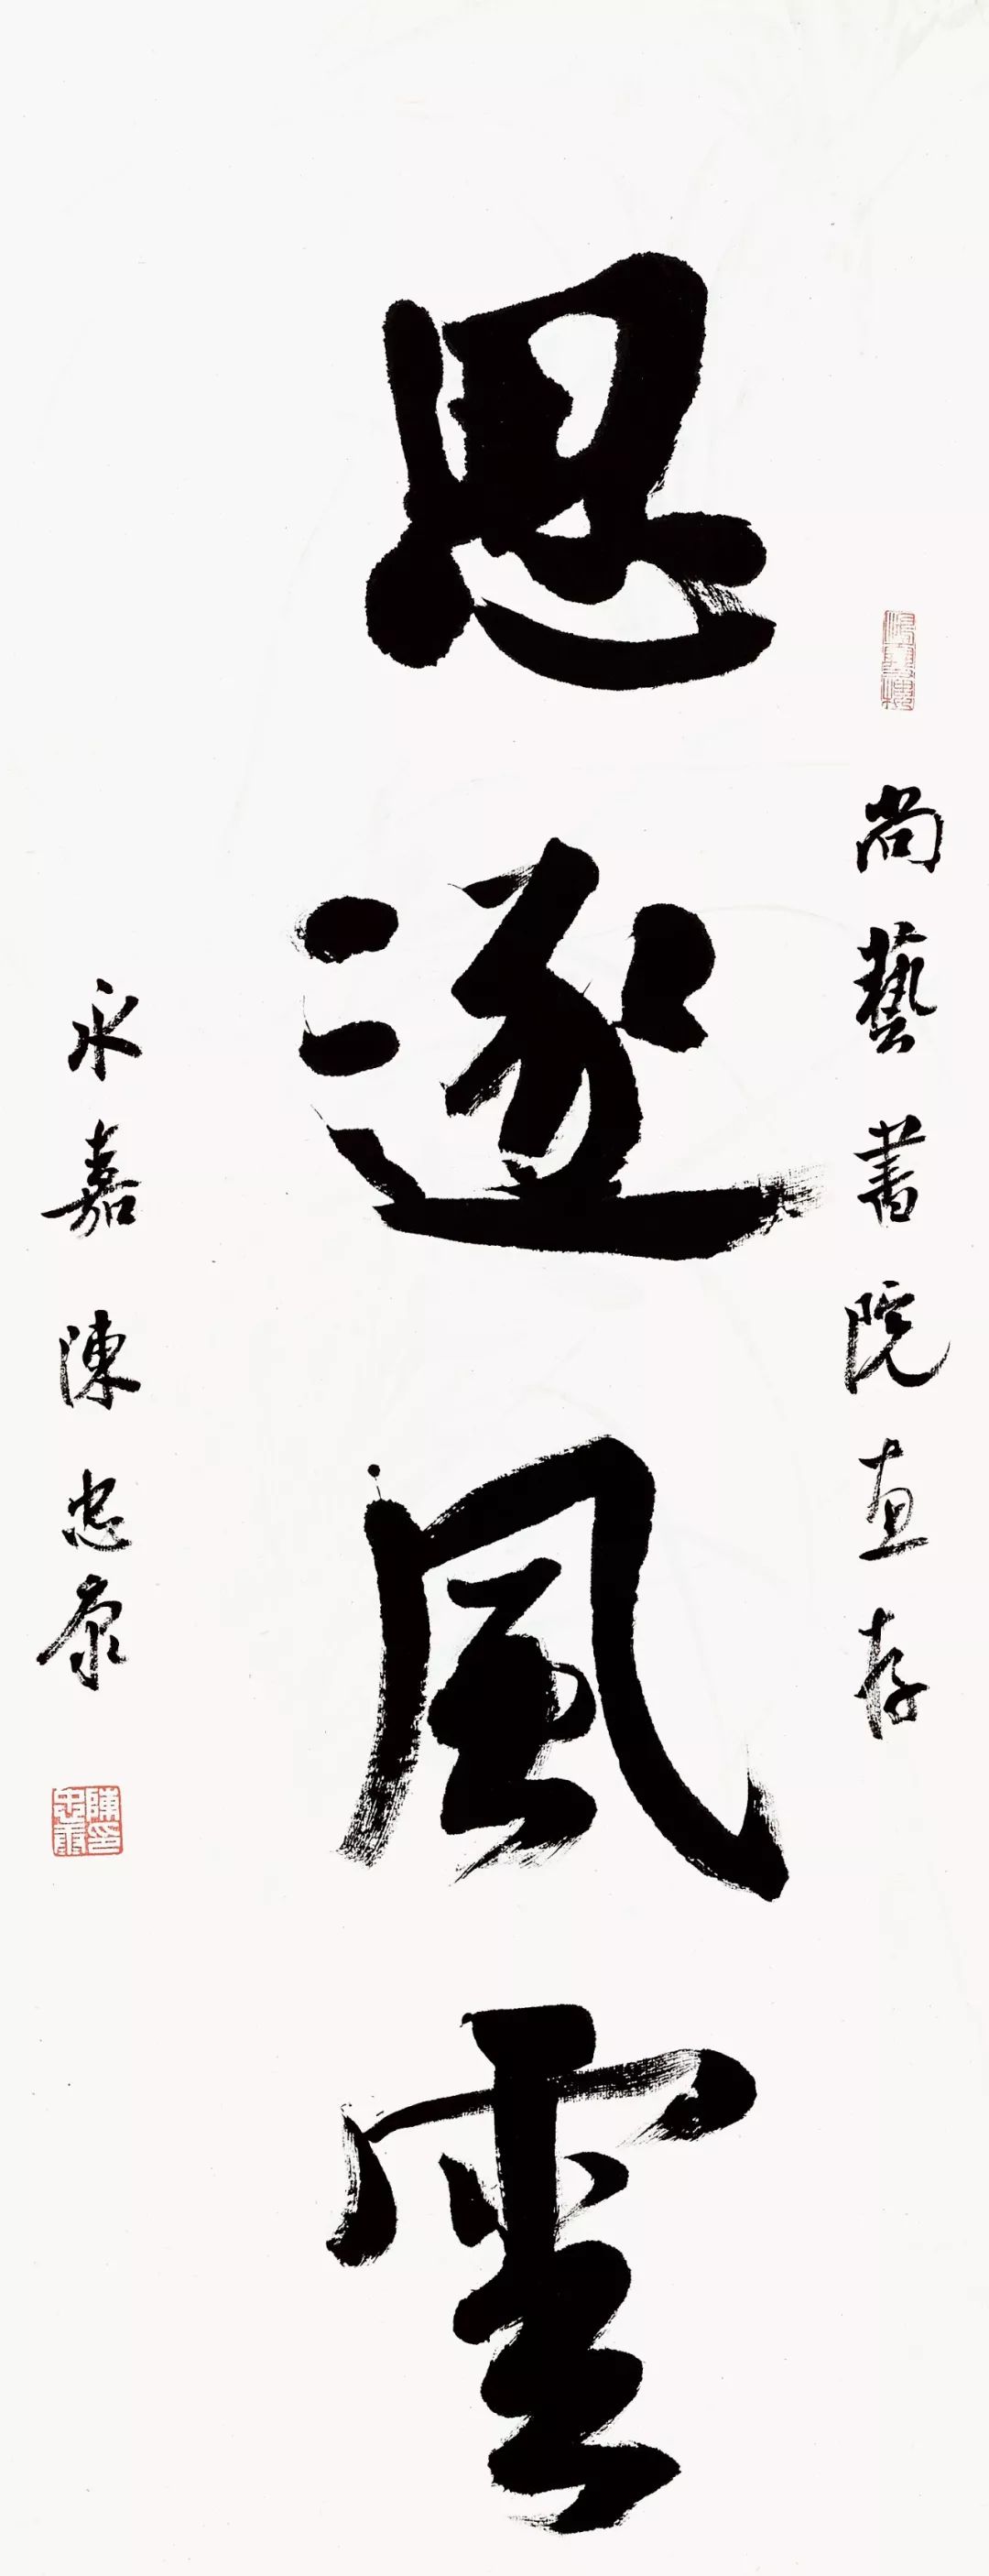 尚藝書院惠存
思逐風雲
永嘉陳忠康
陳印忠康